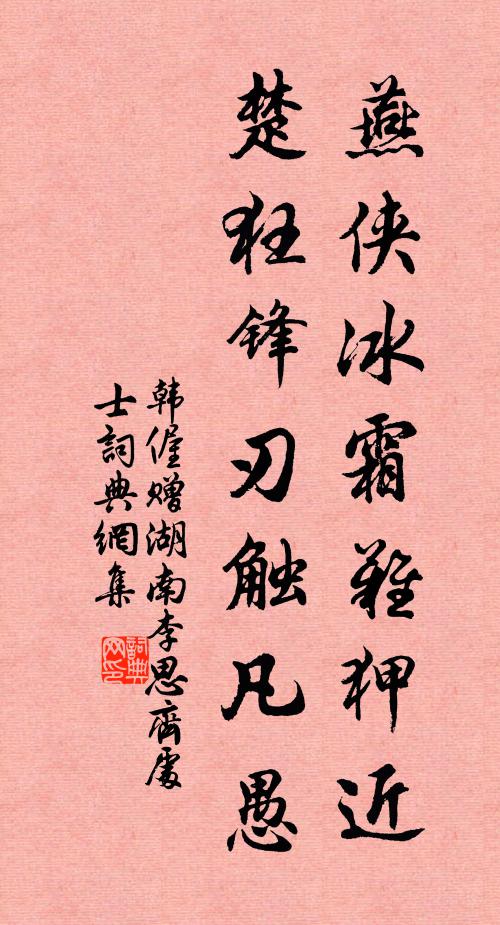 燕侠冰霜难狎近
楚狂锋刃触凡愚
韩偓赠湖南李思齐处
士词典网集
词典网印